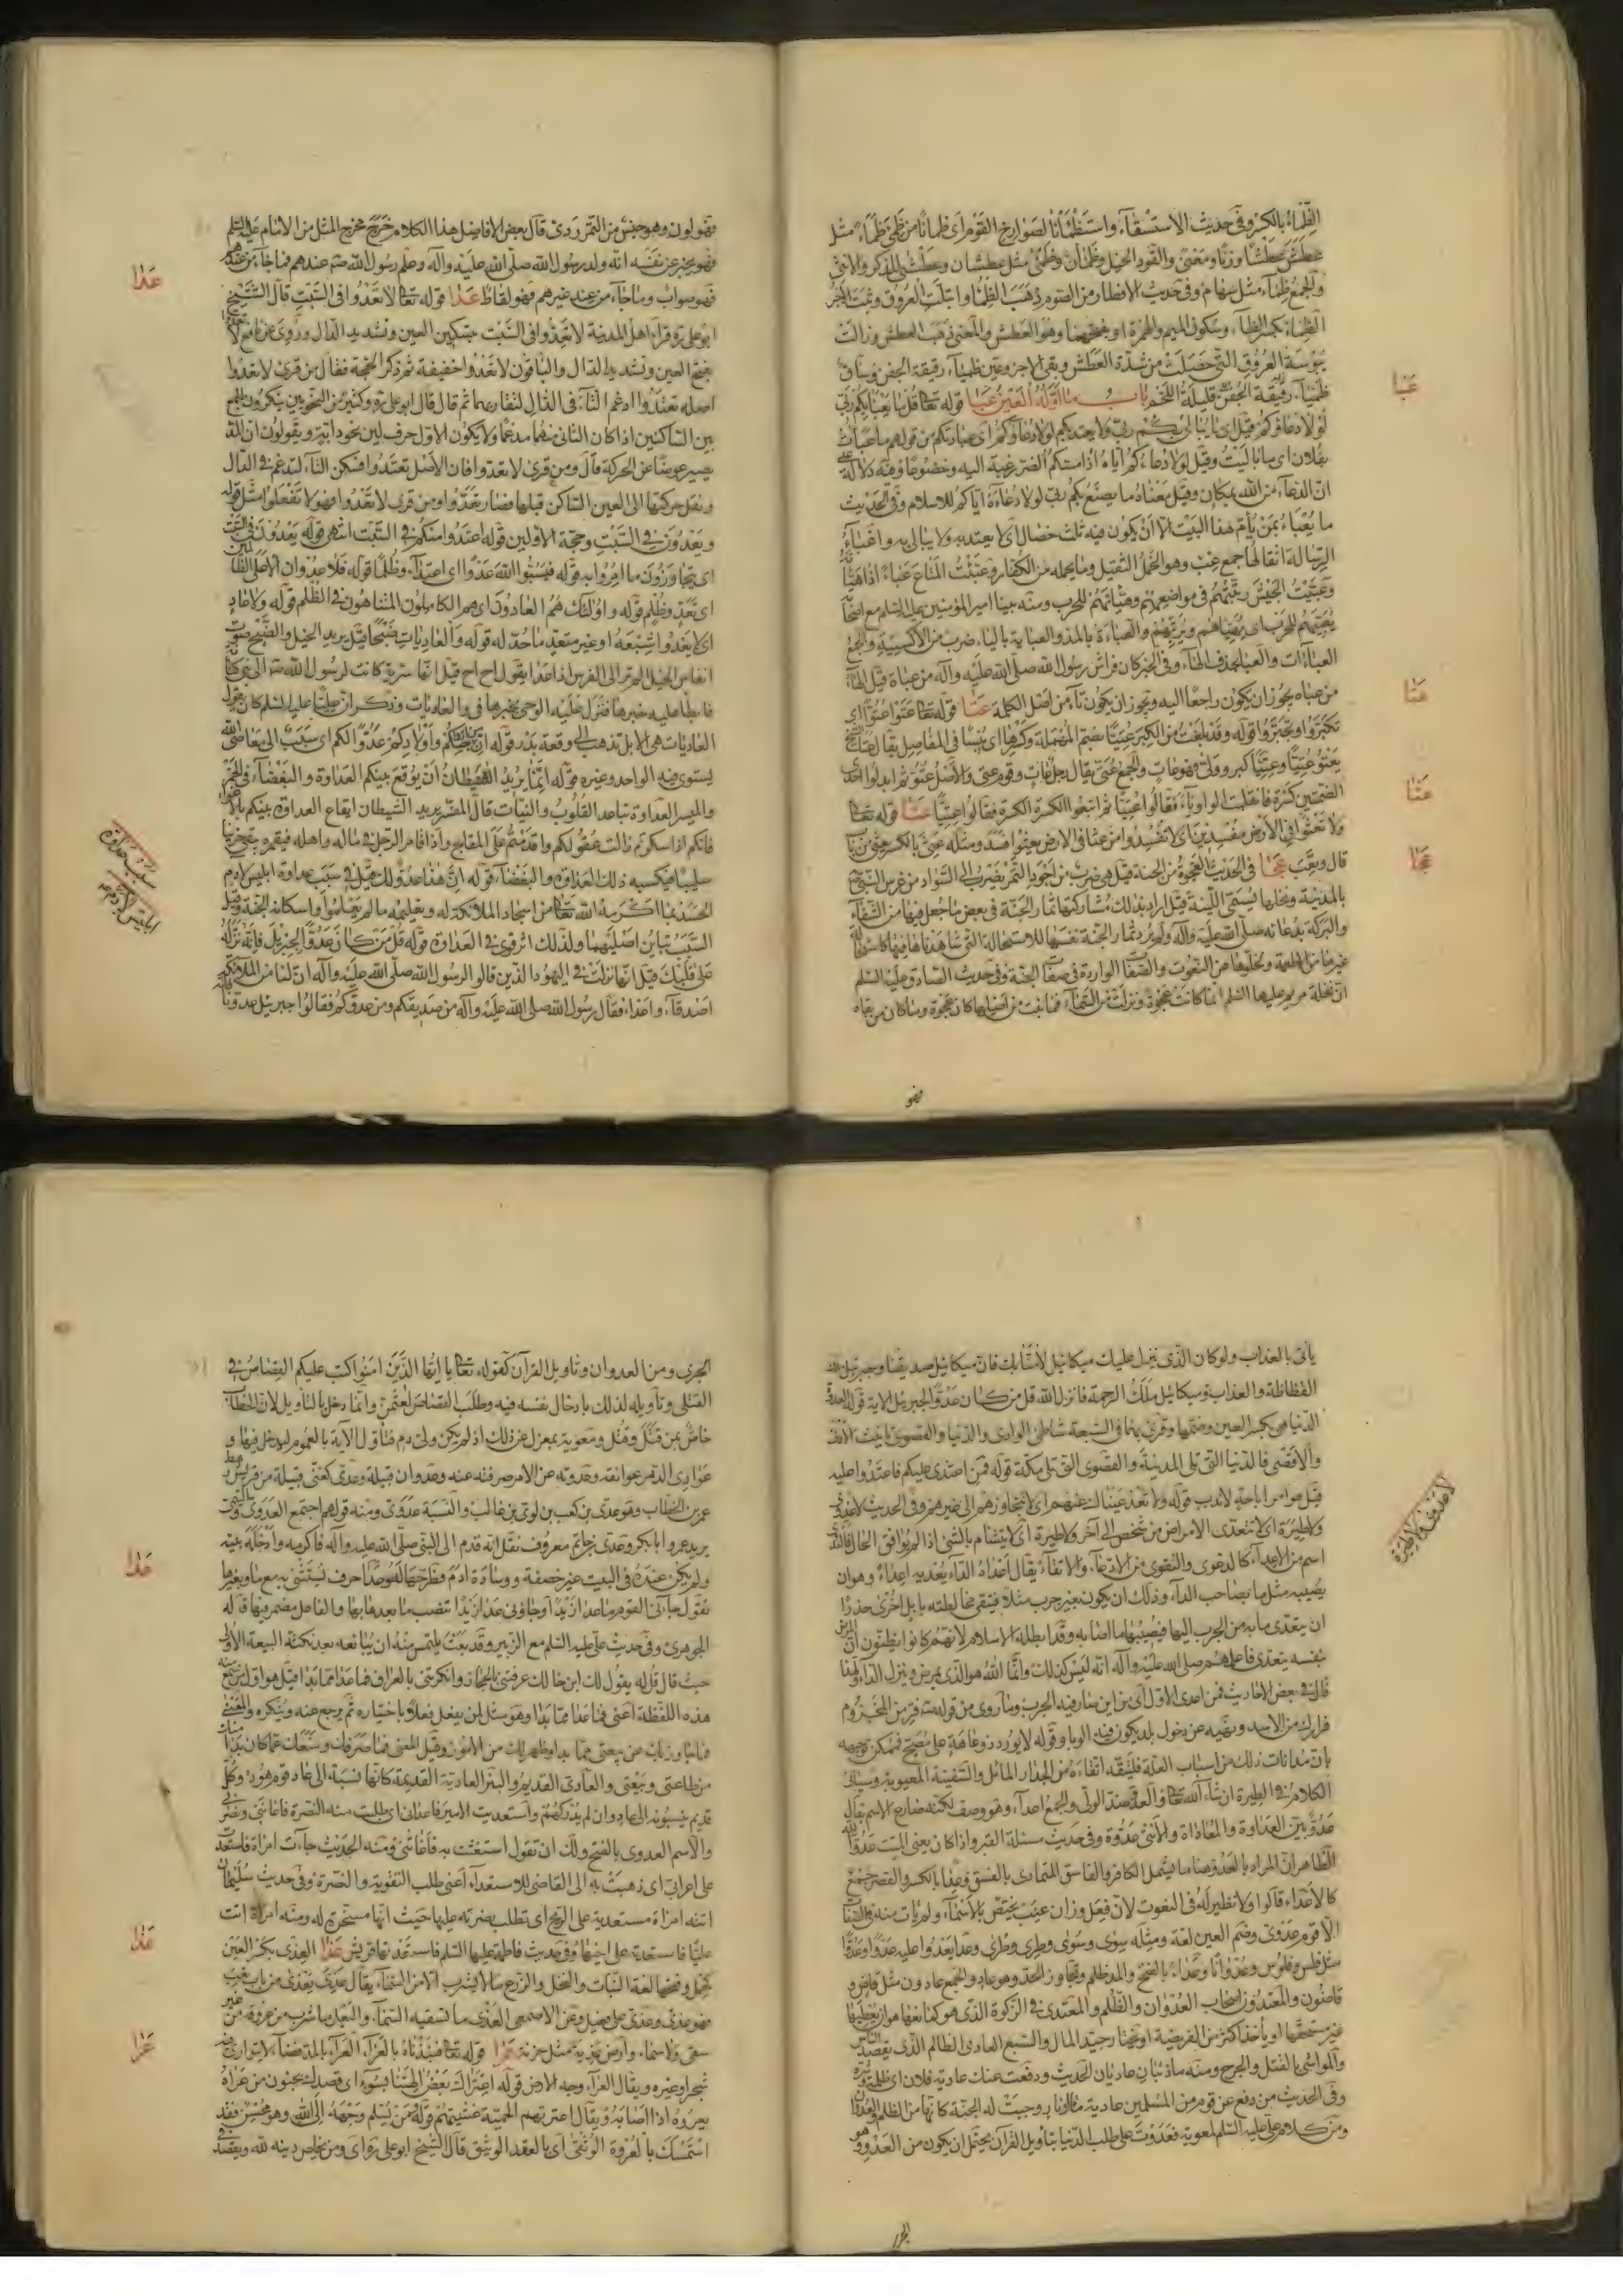 الظماء بالكسر وفى حديث الاستسقاء واستظمأنا لصوارخ القوم اى ظمانا من ظمئ ظمأ مثل
عطش عطشا وزنا ومعنى والقود الخيل وظمآن وظمئى مثل عطشان وعطشى للذكر والانثى
والجمع ظماء مثل سهام وفى حديث الافطار من الصوم ذهب الظمأ وابتلت العروق وثبت الاجر
الظماء بكسر الظاء وسكون الميم والهمزة او بفتحهما وهو العطش والمعنى ذهب العطش وزالت
يبوسة العروق التى حصلت من شدة العطش وبقى الاجر وعين ظمياء رقيقة الجفن وساق
ظمياء قليلة اللحم باب ما اوله العين عبا قوله تعالى قل ما يعبأ بكم ربى
لولا دعاؤكم قيل اى ما يبالى بكم ربى ولا يعتد بكم لولا دعاؤكم اى عبادتكم من قولهم ما عبأت
بفلان اى ما باليت وقيل لولا دعاءكم اياه اذا مسكم الضر رغبة اليه وخضوعا وفيه دلالة على
ان الدعاء من الله بمكان وقيل معناه ما يصنع بكم ربى لولا دعاءه اياكم للاسلام وفى الحديث
ما يعباء بمن يأم هذا البيت الا ان يكون فيه ثلث خصال اى لا يعتد به ولا يبالى به واعباء
الرسالة اثقالها جمع عبء وهو الحمل الثقيل وما يحمله من الكفار وعبئت المتاع عباء اذا هيأته
وعبيت الجيش رتبتهم فى مواضعهم وهيأتهم للحرب ومنه بينا امير المؤمنين عليه السلم مع اصحابه
يعبيهم للحرب اى يهيأهم ويرتبهم والعباءة بالمد والعباية بالياء ضرب من الاكسية والجمع
العباآت والعبا بحذف الهاء وفى الخبر كان فراش رسول الله صلى الله عليه وآله من عباة قيل الهاء
من عباه يجوز ان يكون راجعا اليه ويجوز ان يكون تاء من اصل الكلمة عتا قوله تعالى عتوا عتوا اى
تكبروا وتجبروا قوله وقد بلغت من الكبر عتيا بضم المهملة وكسرها اى يبسا فى المفاصل يقال عتا الشيخ
يعتو عتيا وعتيا كبر وولى فهو عات والجمع عتى يقال رجل عات وقوم عتى والاصل عتو ثم ابدلوا احدى
الضمتين كسرة فانقلبت الواو ياء فقالوا عتيا ثم اتبعوا الكسرة الكسرة فقالوا عتيا عثا قوله تعالى
ولا تعثوا فى الارض مفسدين اى لا تفسدوا من عثا فى الارض يعثوا فسد ومثله عثى بالكسر يعثى من باب
قال وتعب عجا فى الحديث العجوة من الجنة قيل هى ضرب من اجود التمر يضرب الى السواد من غرس النبى ص
بالمدينة ونخلها يسمى اللينة قيل اراد بذلك مشاركتها ثمار الجنة فى بعض ما جعل فيها من الشفاء
والبركة بدعائه صلى الله عليه وآله ولم يرد ثمار الجنة نفسها للاستحالة التى شاهدناها فيها كاستحالة
غيرها من الاطعمة وتخلوها عن النعوت والصفات الواردة فى صفات الجنة وفى حديث الصادق عليه السلم
ان نخلة مريم عليها السلم انما كانت عجوة ونزلت من السماء فما نبت من اصلها كان عجوة وما كان من لقاط
فهو
عبا
عتا
عثا
عجا
فهو لون وهو جنس من التمر ردى قال بعض الافاضل هذا الكلام خرج مخرج المثل من الامام عليه السلم
فهو يخبر عن نفسه انه ولد رسول الله صلى الله عليه وآله وعلم رسول الله ص عندهم فما جاء من عندهم
فهو صواب وما جاء من عند غيرهم فهو لقاط عدا قوله تعالى لا تعدوا فى السبت قال الشيخ
ابو على ره قرأ اهل المدينة لا تعدوا فى السبت بتسكين العين وتشديد الدال وروى عن نافع لا تعدوا
بفتح العين وتشديد الدال والباقون لا تعدوا خفيفة ثم ذكر الحجة فقال من قرئ لا تعدوا
اصله تعتدوا ادغم التاء فى الدال لتقاربهما ثم قال قال ابو على ره وكثير من النحويين ينكرون الجمع
بين الساكنين اذا كان الثانى منهما مدغما ولا يكون الاول حرف لين نحو دابة ويقولون ان المد
يصير عوضا عن الحركة قال ومن قرئ لا تعدوا فان الاصل تعتدوا فسكن التاء لتدغم فى الدال
ونقل حركتها الى العين الساكن قبلها فصار تعدوا ومن قرئ لا تعدوا فهو لا تفعلوا مثل قوله
ويعدون فى السبت وحجة الاولين قوله اعتدوا منكم فى السبت انتهى قوله يعدون فى السبت
اى يتجاوزون ما امروا به قوله فيسبوا الله عدوا اى اعتداء وظلما قوله فلا عدوان الا على الظالمين
اى تعد وظلم قوله واولئك هم العادون اى هم الكاملون المتناهون فى الظلم قوله ولا عاد
اى لا يعدوا شبعه او غير متعد ما حد له قوله والعاديات ضبحا قيل يريد الخيل والضبح صوت
انفاس الخيل الم تر الى الفرس اذا عدا يقول اح اح قيل انها سرية كانت لرسول الله ص الى بنى كنانة
فابطا عليه خبرها فنزل عليه الوحى بخبرها فى والعاديات وذكر ان عليا عليه السلم كان يقول
العاديات هى الابل تذهب الى وقعة بدر قوله ان من ازواجكم واولادكم عدوا لكم اى سبب الى معاصى الله
يستوى فيه الواحد وغيره قوله انما يريد الشيطان ان يوقع بينكم العداوة والبغضاء فى الخمر
والميسر العداوة تباعد القلوب والنيات قال المفسر يريد الشيطان ايقاع العداوة بينكم بالاغواء
فانكم اذا سكرتم زالت عقولكم واقدمتم على المقابح واذا قامر الرجل فى ماله واهله فيقمر يبقى حزينا
سليبا فيكسبه ذلك العداوة والبغضاء قوله ان هذا عدو لك قيل فى سبب عداوة ابليس لآدم
الحسد بما اكرمه الله تعالى من اسجاد الملائكة له وتعليمه ما لم يعلموا واسكانه الجنة وقيل
السبب تباين اصليهما ولذلك اثر قوى فى العداوة قوله قل من كان عدوا لجبريل فانه نزله
على قلبك قيل انها نزلت فى اليهود الذين قالوا لرسول الله صلى الله عليه وآله ان لنا من الملائكة
اصدقاء واعداء فقال رسول الله صلى الله عليه وآله من صديقكم ومن عدوكم فقالوا جبريل عدونا فانه
عدا
سبب عداوة
ابليس لآدم
ياتى بالعذاب ولو كان الذى نزل عليك ميكائيل لآمنا بك فان ميكائيل صديقنا وجبرئيل ملك
الفظاظة والعذاب وميكائيل ملك الرحمة فانزل الله قل من كان عدوا لجبريل الاية قوله بالعدوة
الدنيا هى بكسر العين وضمها وقرئ بهما فى السبعة شاطئ الوادى والدنيا والقصوى تانيث الادنى
والاقصى فالدنيا التى تلى المدينة والقصوى التى تلى مكة قوله فمن اعتدى عليكم فاعتدوا عليه
قيل هو امر اباحة لا ندب قوله ولا تعد عيناك عنهم اى لا تتجاوزهم الى غيرهم وفى الحديث لا عدوى
ولا طيرة اى لا تتعدى الامراض من شخص الى آخر ولا طيرة اى لا يتشاءم بالشئ اذا لم يوافق الحال فالعدوى
اسم من الاعداء كالدعوى والتقوى من الادعاء والاتقاء يقال اعداه الداء يعديه اعداء وهو ان
يصيبه مثل ما بصاحب الداء وذلك ان يكون ببعير جرب مثلا فيتقى مخالطته بابل اخرى حذرا
ان يتعدى ما به من الجرب اليها فيصيبها ما اصابه وقد ابطله الاسلام لانهم كانوا يظنون ان المرض
بنفسه يتعدى فاعلمهم صلى الله عليه وآله انه ليس كذلك وانما الله هو الذى يمرض وينزل الداء ولهذا
قال فى بعض الاحاديث فمن اعدى الاول اى من اين صار فيه الجرب وما روى من قوله ص فر من المجذوم
فرارك من الاسد ونهيه عن دخول بلد يكون فيه الوبا وقوله لا يورد ذو عاهة على مصح فممكن توجيهه
بان مداناة ذلك من اسباب العلة فليتقه اتقاءه من الجدار المائل والسفينة المعيوبة وسياتى
الكلام فى الطيرة ان شاء الله تعالى والعدو ضد الولى والجمع اعداء وهو وصف لكنه ضارع الاسم يقال
عدو بين العداوة والمعاداة والانثى عدوة وفى حديث مسئلة القبر واذا كان يعنى الميت عدوا لله
الظاهر ان المراد بالعدو هنا ما يشمل الكافر والفاسق المتمادى بالفسق وعدا بالكسر والقصر جمع
كالاعداء قالوا ولا نظير له فى النعوت لان فعل وزان عنب يختص بالاسماء ولم يات منه فى الصفات
الا قوم عدى وضم العين لغة ومثله سوى وسوى وطوى وطوى وعدا يعدوا عليه عدوا وعدوا
مثل فلس وفلوس وعدوانا وعداء بالفتح والمد ظلم وتجاوز الحد وهو عاد والجمع عادون مثل قاض و
قاضون والمعتدون اصحاب العدوان والظلم والمعتدى فى الزكوة الذى هو كمانعها هو ان يعطيها
غير مستحقها او يأخذ اكثر من الفريضة او يختار جيد المال والسبع العادى الظالم الذى يقصد الناس
والمواشى بالقتل والجرح ومنه ماذئبان عاديان الحديث ودفعت عنك عادية فلان اى ظلمه وشره
وفى الحديث من دفع عن قوم من المسلمين عادية ماء او نار وجبت له الجنة كانها من الظلم والعدوان
ومن كلام على عليه السلم لمعوية فعدوت على طلب الدنيا بتاويل القرآن يحتمل ان يكون من العدو وهو
الجرى
لا عدوى ولا طيرة
الجرى ومن العدوان وتاويل القرآن كقوله تعالى يا ايها الذين امنوا كتب عليكم القصاص فى
القتلى وتاويله لذلك بادخال نفسه فيه وطلب القصاص لعثمن وانما دخل بالتاويل لان الخطاب
خاص بمن قتل وقتل ومعوية بمعزل عن ذلك اذ لم يكن ولى دم فتاول الآية بالعموم ليدخل فيها و
عوادى الدهر عوائقه وعدوته عن الامر صرفته عنه وعدوان قبيلة وعدى كغنى قبيلة من قريش رهط
عمر بن الخطاب وهو عدى بن كعب بن لوى بن غالب والنسبة عدوى ومنه قولهم اجتمع العدوى والتيمى
يريد عمر وابا بكر وعدى بن حاتم معروف نقل انه قدم الى النبى صلى الله عليه وآله فاكرمه وادخله بيته
ولم يكن عنده فى البيت غير خصفة ووسادة ادم فطرحها له وعدا حرف يستثنى به مع ما وبغيرها
تقول جاءنى القوم ما عدا زيدا وجاؤنى عدا زيدا تنصب ما بعدها بها والفاعل مضمر فيها قاله
الجوهرى وفى حديث على عليه السلم مع الزبير وقد بعث يلتمس منه ان يبايعه بعد نكثه البيعة الاولى
حيث قال قل له يقول لك ابن خالك عرفتنى بالحجاز وانكرتنى بالعراق فما عدا مما بدا قيل هو اول من سمع منه
هذه اللفظة اعنى فما عدا مما بدا وهو مثل لمن يفعل فعلا باختياره ثم يرجع عنه وينكره والمعنى
فما جاوز بك عن بيعتى مما بدا وظهر لك من الامور وقيل المعنى فما صرفك ومنعك عما كان بدا منك
من طاعتى وبيعتى والعادى القديم والبئر العادية القديمة كانها نسبة الى عاد قوم هود وكل
قديم ينسبونه الى عاد وان لم يدركهم واستعديت الامير فاعدانى اى طلبت منه النصرة فاعاننى ونصرنى
والاسم العدوى بالفتح ولك ان تقول استغثت به فاغاثنى ومنه الحديث جاءت امراة فاستعدت
على اعرابى اى ذهبت به الى القاضى للاستعداء اعنى طلب التقوية والنصرة وفى حديث سليمان
اتته امراة مستعدية على الريح اى تطلب نصرته عليها حيث انها مسخرة له ومنه امراة اتت
عليا فاستعدته على اخيها وفى حديث فاطمة عليها السلم فاستعدتها قريش عذا العذى بكسر العين
كحمل وفتحها لغة النبات والنخل والزرع ما لا يشرب الا من السماء يقال عذى يعذى من باب تعب
فهو عذى وعذى على فعيل وعن الاصمعى العذى ما تسقيه السماء والبعل ما شرب من عروقه من غير
سقى ولا سماء وارض عذية مثل خربة عرا قوله تعالى فنبذناه بالعراء العراء بالمد فضاء لا يتوارى فيه
شجر او غيره ويقال العراء وجه الارض قوله اعتراك بعض الهتنا بسوء اى قصدك بجنون من عراه
يعروه اذا اصابه ويقال اعترتهم الحمية غشيتهم قوله ومن يسلم وجهه الى الله وهو محسن فقد
استمسك بالعروة الوثقى اى بالعقد الوثيق قال الشيخ ابو على ره اى ومن يخلص دينه لله ويقصد
عدا
عذا
عرا